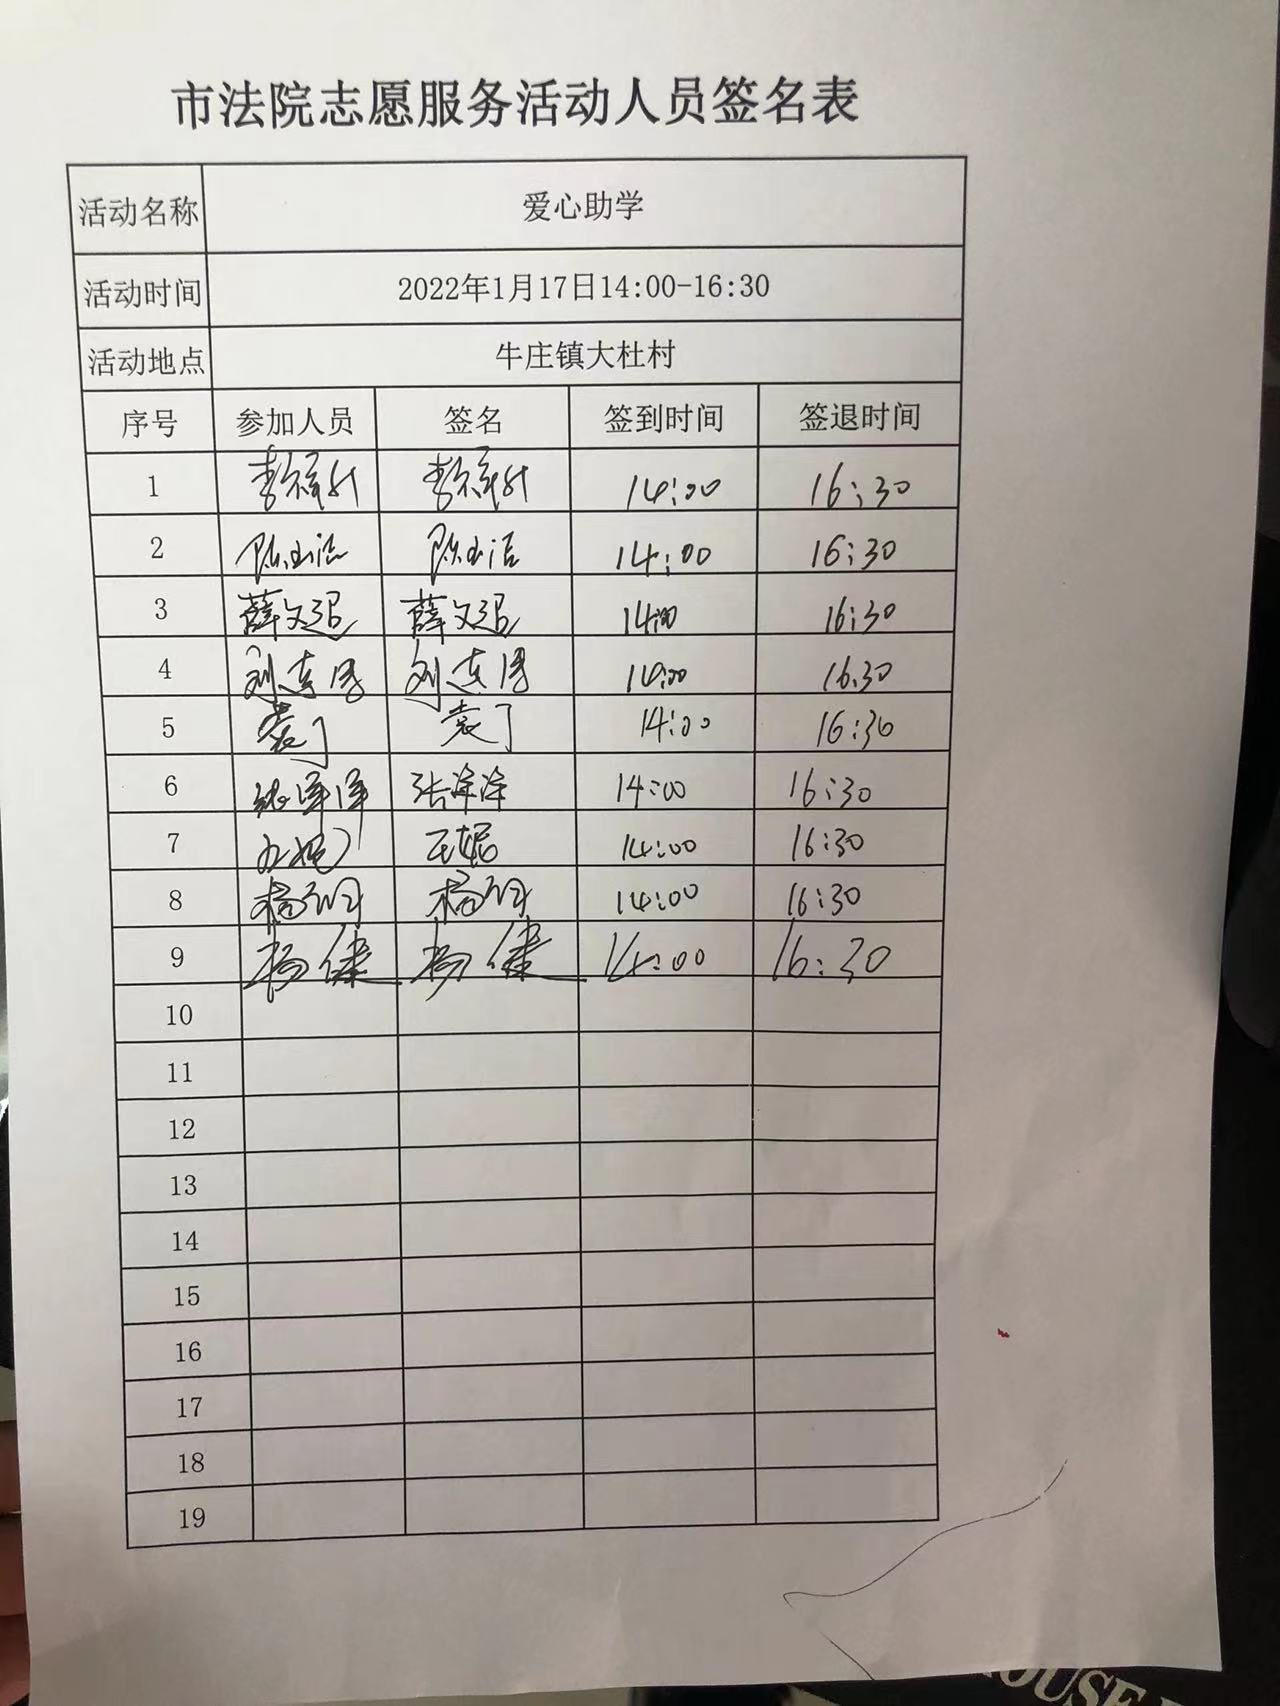 市法院志愿服务活动人员签名表
活动名称 爱心助学
活动时间 2022年1月17日14:00-16:30
活动地点 牛庄镇大杜村
序号 参加人员 签名 签到时间 签退时间
1 14:00 16:30
2 14:00 16:30
3 薛文超 薛文超 14:00 16:30
4 14:00 16:30
5 袁丁 袁丁 14:00 16:30
6 张泽泽 张泽泽 14:00 16:30
7 14:00 16:30
8 14:00 16:30
9 杨健 杨健 14:00 16:30
10
11
12
13
14
15
16
17
18
19